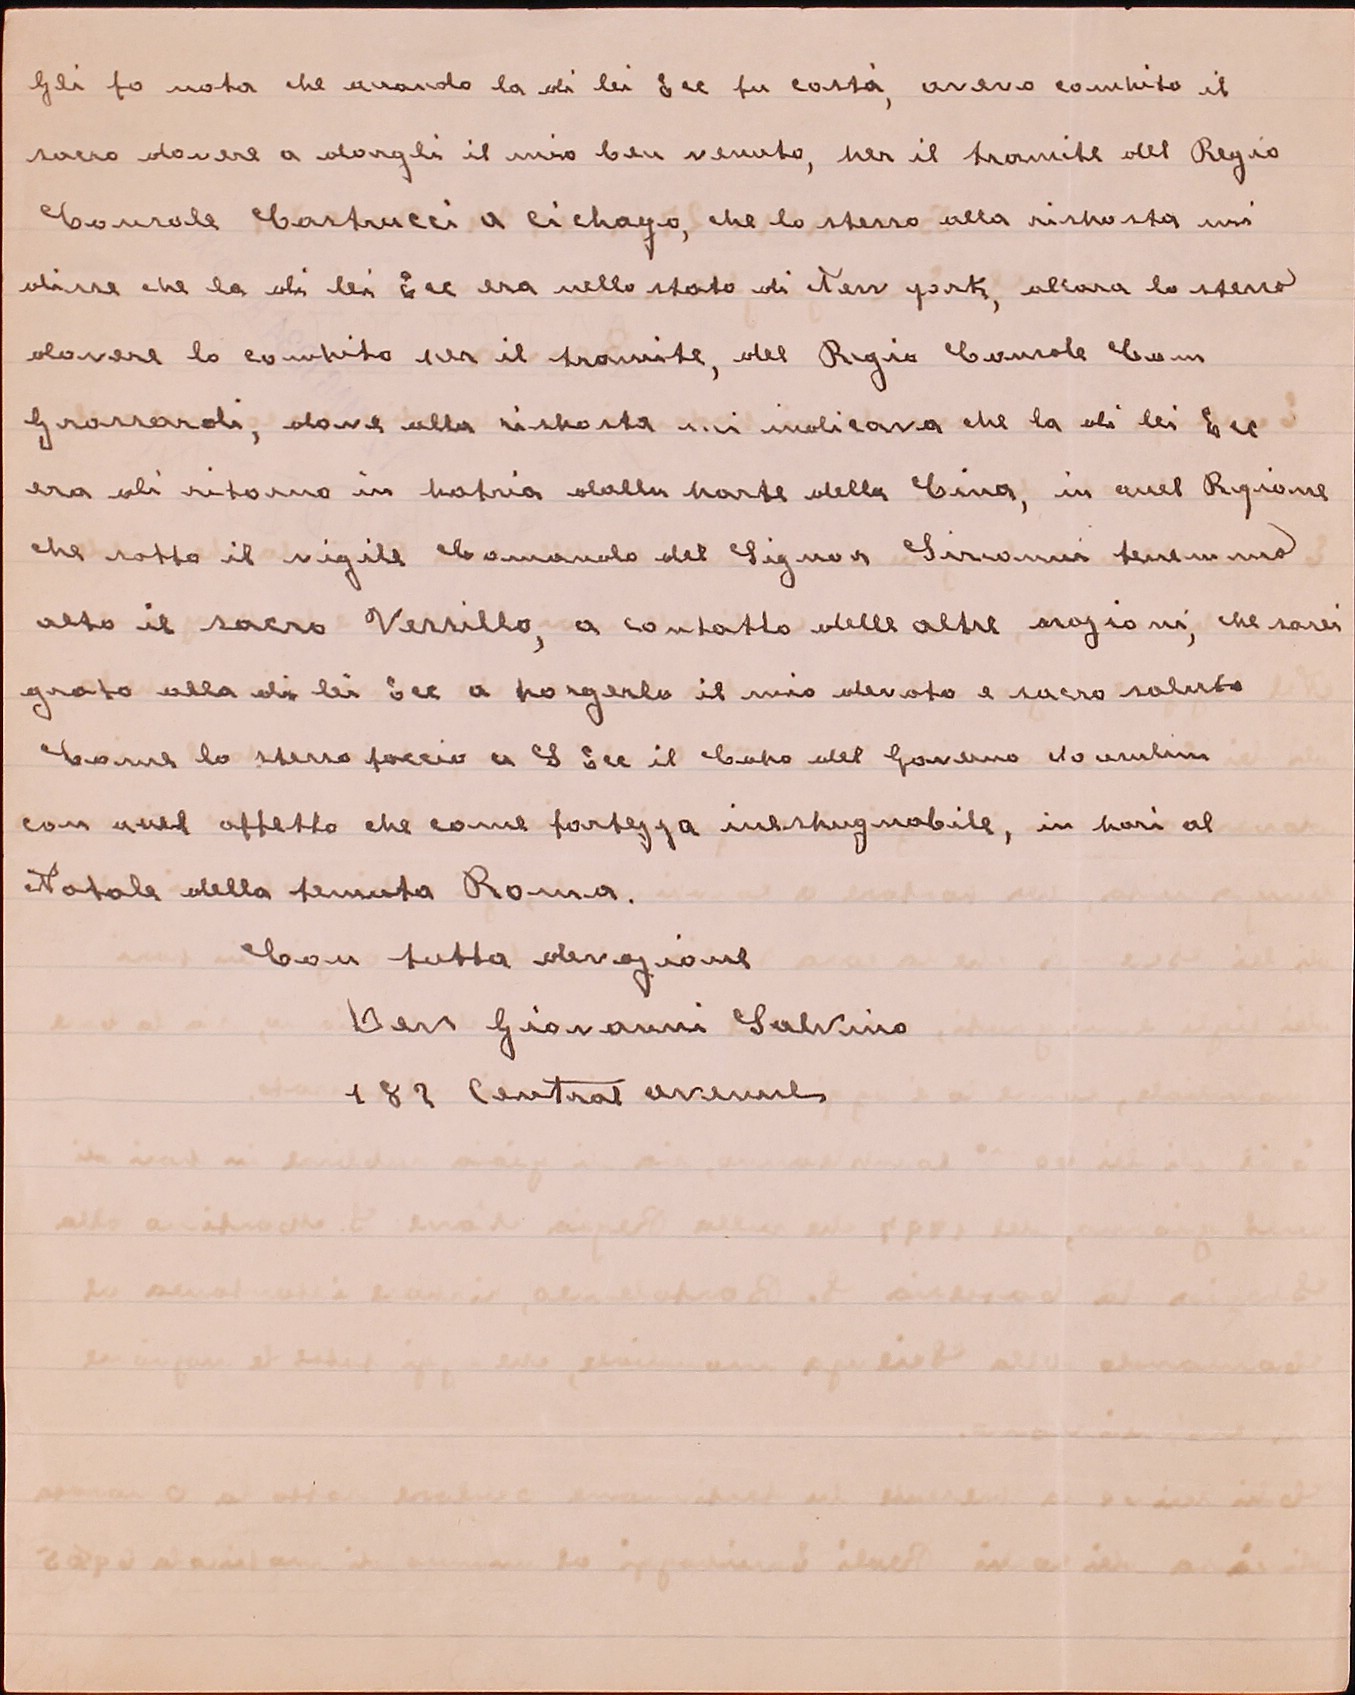 Gli fo nota che quando la di lei Ecc fu costà, avevo compito il
sacro dovere a dargli il mio ben venuto, per il tramite del Regio
Console Castrucci a Cichago, che lo stesso alla risposta mi
disse che la di lei Ecc era nello stato di New york, allora lo stesso
dovere lo compito per il tramite, del Regio Console Com
Grossardi, dove alla risposta mi indicava che la di lei Ecc
era di ritorno in patria dalla parte della Cina, in quel Regione
che sotto il vigile Comando del Signor tenemmo
alto il sacro Vessillo, a contatto delle altre che sarei
grato alla di lei Ecc a porgerlo il mio devoto e sacro saluto
Come lo stesso faccio a S Ecc il Capo del Governo
con quel affetto che come fortezza inespugnabile, in pari al
Natale della temuta Roma.
Con tutta devozione
Ders Giovanni Salvino
187 Central avenue